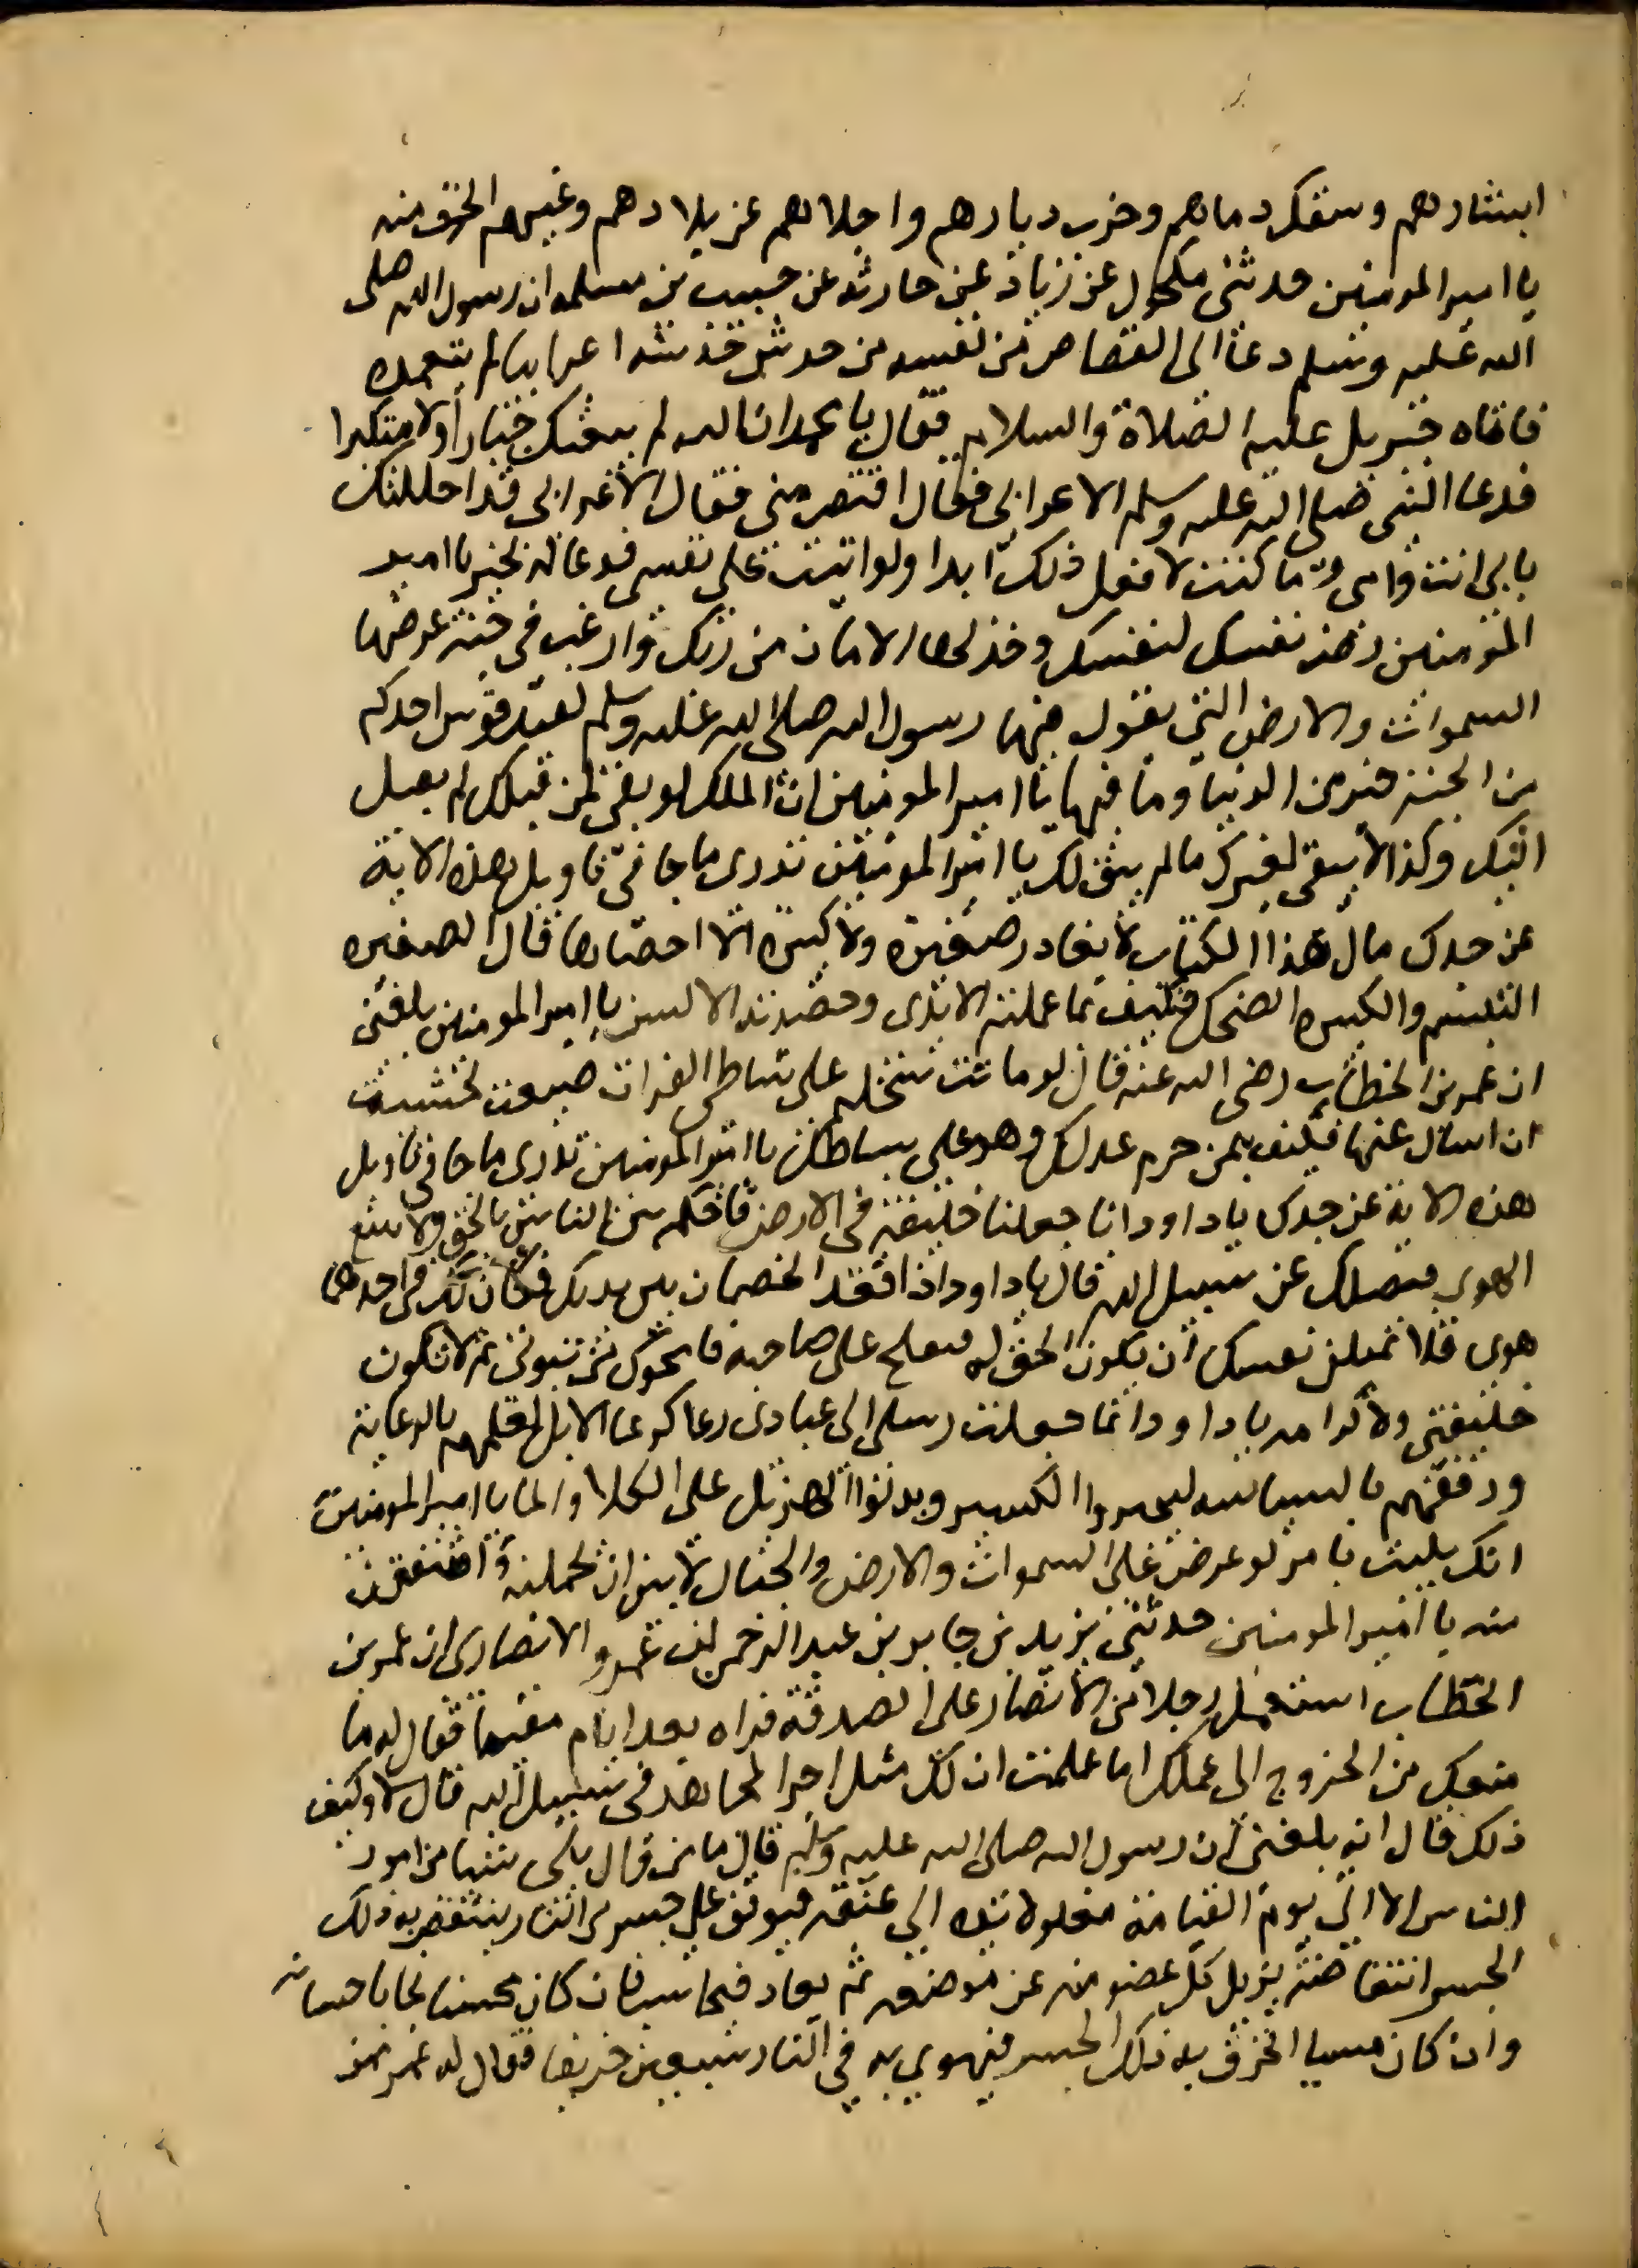 ابشارهم وسفك دماهم وخرب ديارهم واجلاهم عن بلادهم وغيبهم الخوف منه
يا امير المومنين حدثنى مكحول عن زياد عن حارثه عن حبيب بن مسلمه ان رسول الله صلى
الله عليه وسلم دعا الى القصاص من نفسه من خدش خدشه اعرابيا لم يتعمده
فاتاه جبريل عليه الصلاة والسلام فقال يا محمد ان الله لم يبعثك جبارا ولا متكبرا
فدعا النبى صلى الله عليه وسلم الاعرابى فقال اقتص منى فقال الاعرابى قد احللتك
بابى انت وامى وما كنت لافعل ذلك ابدا ولو اتيت على نفسى فدعا له بخير يا امير
المومنين رض نفسك لنفسك وخذ لها الامان من ربك وارغب فى جنة عرضها
السموات والارض التى يقول فيها رسول الله صلى الله عليه وسلم لقيد قوس احدكم
من الجنة خير من الدنيا وما فيها يا امير المومنين ان الملك لو بقى لمن قبلك لم يصل
اليك وكذا لا يبقى لغيرك مالم يبق لك يا امير المومنين تدرى ما جا فى تاويل هذه الاية
عن جدك مال هذا الكتاب لا يغادر صغيرة ولا كبيرة الا احصاها قال الصغيره
التبسم والكبيره الضحك فكيف بما عملته الايدى وحصدته الالسن يا امير المومنين بلغنى
ان عمر بن الخطاب رضى الله عنه قال لو ماتت سخله على شاطى الفرات ضيعة لخشيت
ان اسال عنها فكيف بمن حرم عدلك وهو على بساطك يا امير المومنين تدرى ما جا فى تاويل
هذه الاية عن جدك يا داود انا جعلناك خليفة فى الارض فاحكم بين الناس بالحق ولا تتبع
الهوى فيضلك عن سبيل الله قال يا داود اذا اقعد الخصمان بين يديك فكان لك فى احدهما
هوى فلا تمنين نفسك ان يكون الحق له فيفلح على صاحبه فامحوك من نبوتى ثم لا تكون
خليفتى ولا كرامه يا داود انما جعلت رسلى الى عبادى رعا كرعا الابل لعلمهم بالرعاية
ورفقهم بالسياسه ليجبروا الكسير ويدنوا الهزيل على الكلا والما يا امير المومنين
انك بليت بامر لو عرض على السموات والارض والجبال لابين ان يحملنه واشفقن
منه يا امير المومنين حدثنى يزيد بن جابر بن عبد الرحمن بن عمرو الانصارى ان عمر بن
الخطاب استعمل رجلا من الانصار على الصدقة فراه بعد ايام مقيما فقال له ما
منعك من الخروج الى عملك اما علمت ان لك مثل اجر المجاهد فى سبيل الله قال لا وكيف
ذلك قال انه بلغنى ان رسول الله صلى الله عليه وسلم قال ما من وال يلى شيا من امور
الناس الا اتى يوم القيامة مغلولة يده الى عنقه فيوقف على جسر من النار ينتفض به ذلك
الجسر انتفاضة يزيل كل عضو منه عن موضعه ثم يعاد فيحاسب فان كان محسنا نجا باحسانه
وان كان مسيا انخرق به ذلك الجسر فيهوي به في النار سبعين خريفا فقال له عمر ممن